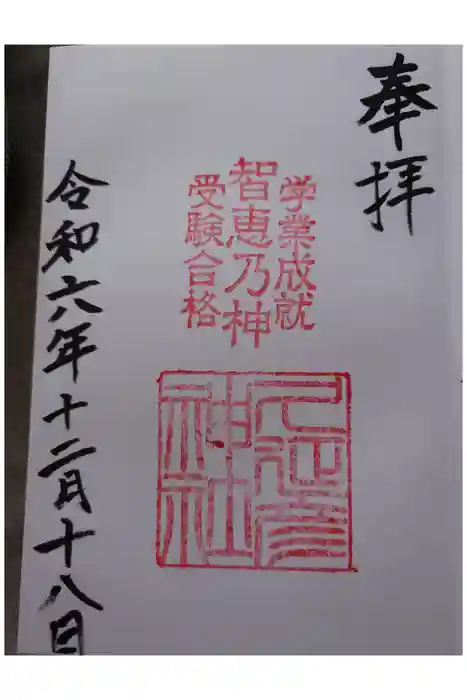 奉拝
学業成就
智恵乃神
受験合格
久延彦
神社
令和六年十二月十八日